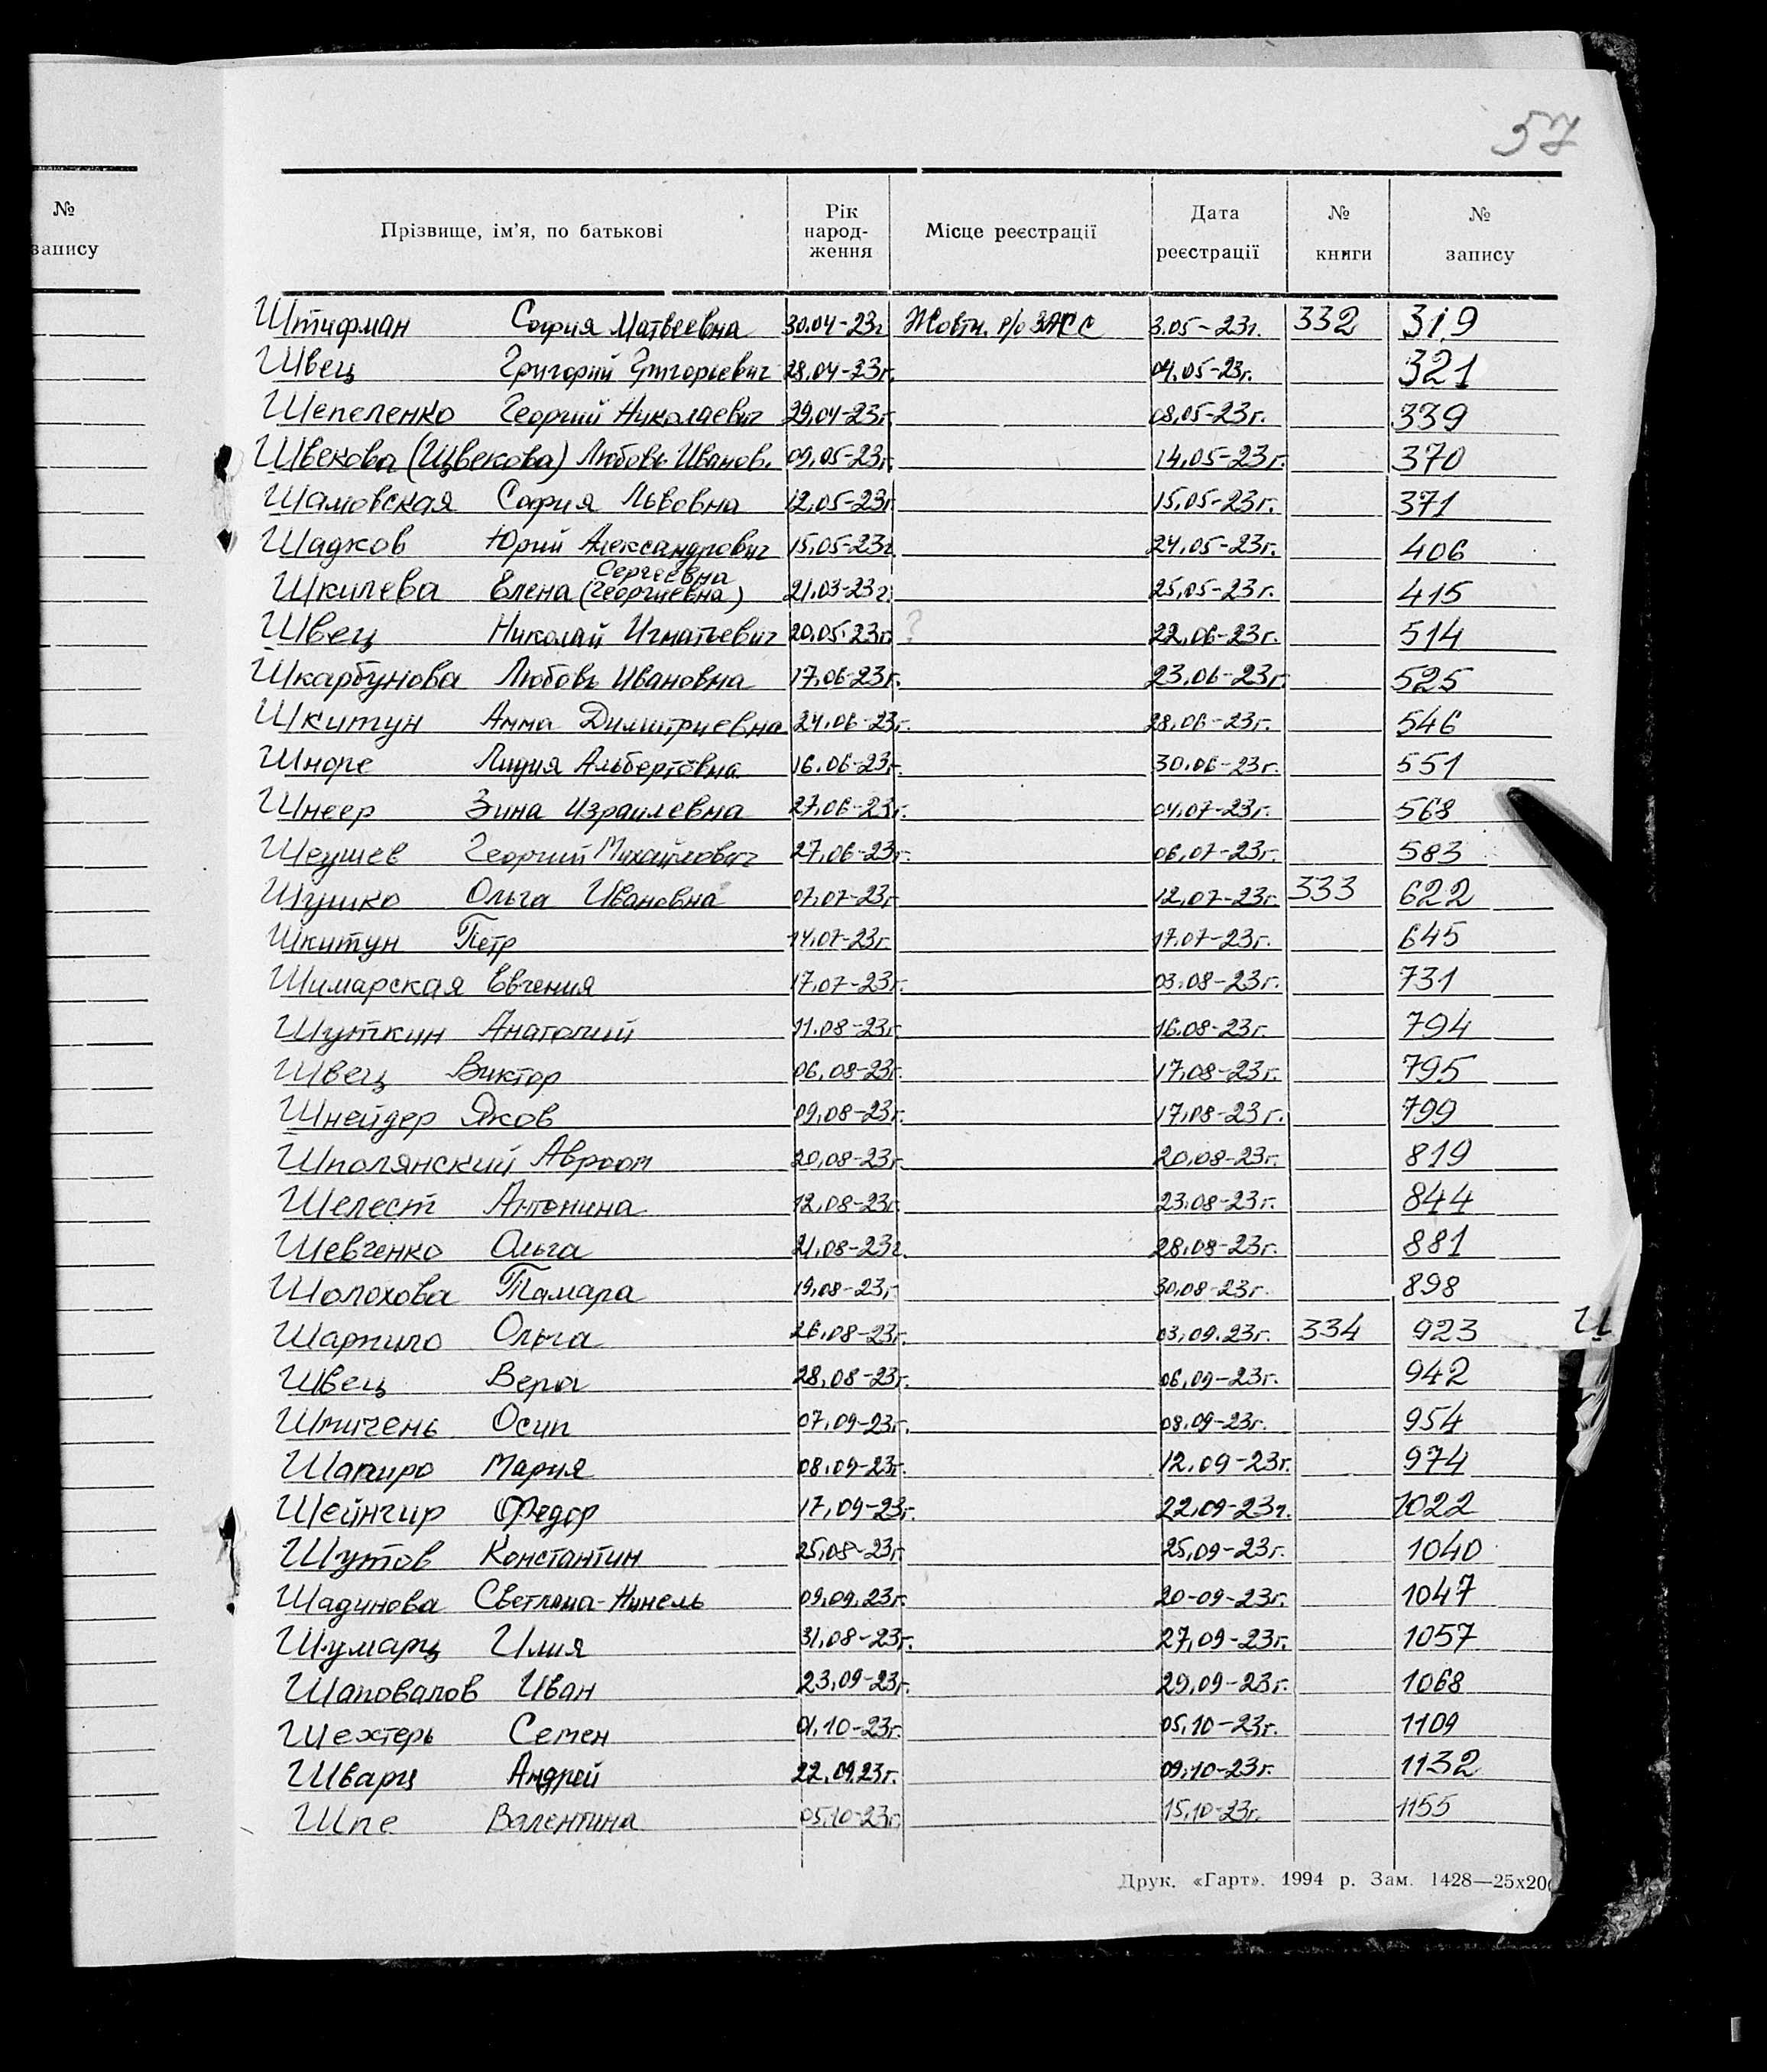 57
№
запису
Прізвище, ім'я, по батькові
Рік
народ-
ження
Місце реєстрації
Дата
реєстрації
№
книги
№
запису
Штифман София Матвеевна 30.04-23г Жовтн. р/о ЗАГС 3.05-23г. 332 319
Швец Григорий Григорьевич 28.04-23г. 04.05-23г. 321
Шепеленко Георгий Николаевич 29.04-23г. 08.05-23г. 339
Швекова (Цвекова) Любовь Иванов. 09.05-23г. 14.05-23г. 370
Шамовская София Львовна 12.05-23г 15.05-23г. 371
Шадков Юрий Александрович 15.05-23г 24.05-23г. 406
Сергеевна
Шкилева Елена (Георгиевна) 21.03-23г. 25.05-23г. 415
Швец Николай Игнатьевич 20.05.23г. ? 22.06-23г. 514
Шкарбунова Любовь Ивановна 17.06-23г. 23.06-23г. 525
Шкитун Анна Димитриевна 24.06-23г. 28.06-23г. 546
Шноре Лидия Альбертовна 16.06-23г. 30.06-23г. 551
Шнеер Зина Израилевна 27.06-23г. 04.07-23г. 568
Шеушев Георгий Михайлович 27.06-23г. 06.07-23г. 583
Шушко Ольга Ивановна 07.07-23г 12.07-23г. 333 622
Шкитун Петр 14.07-23г. 17.07-23г. 645
Шимарская Евгения 17.07-23г. 03.08-23г. 731
Шуткин Анатолий 11.08-23г. 16.08-23г. 794
Швец Виктор 06.08-23г. 17.08-23г. 795
Шнейдер Яков 09.08-23г. 17.08-23г. 799
Шполянский Авроом 20.08-23г. 20.08-23г. 819
Шелест Антонина 12.08-23г. 23.08-23г. 844
Шевченко Ольга 21.08-23г. 28.08-23г. 881
Шолохова Тамара 19.08-23г 30.08-23г. 898
Шарпило Ольга 26.08-23г. 03.09.23г. 334 923
Швец Вера 28.08-23г. 06.09-23г. 942
Шпичень Осип 07.09-23г. 08.09-23г. 954
Шапиро Мария 08.09-23г. 12.09-23г. 974
Шейнгир Федор 17.09-23г. 22.09-23г. 1022
Шутов Константин 25.08-23г. 25.09-23г. 1040
Шадинова Светлана-Нинель 09.09.23г. 20-09-23г. 1047
Шумарц Илия 31.08-23г. 27.09-23г. 1057
Шаповалов Иван 23.09-23г. 29.09-23г. 1068
Шехтерь Семен 01.10-23г. 05.10-23г. 1109
Шварц Андрей 22.09.23г. 09.10-23г. 1132
Шпе Валентина 05.10-23г. 15.10-23г. 1155
Друк. «Гарт». 1994 р. Зам. 1428—25х20
№
запису